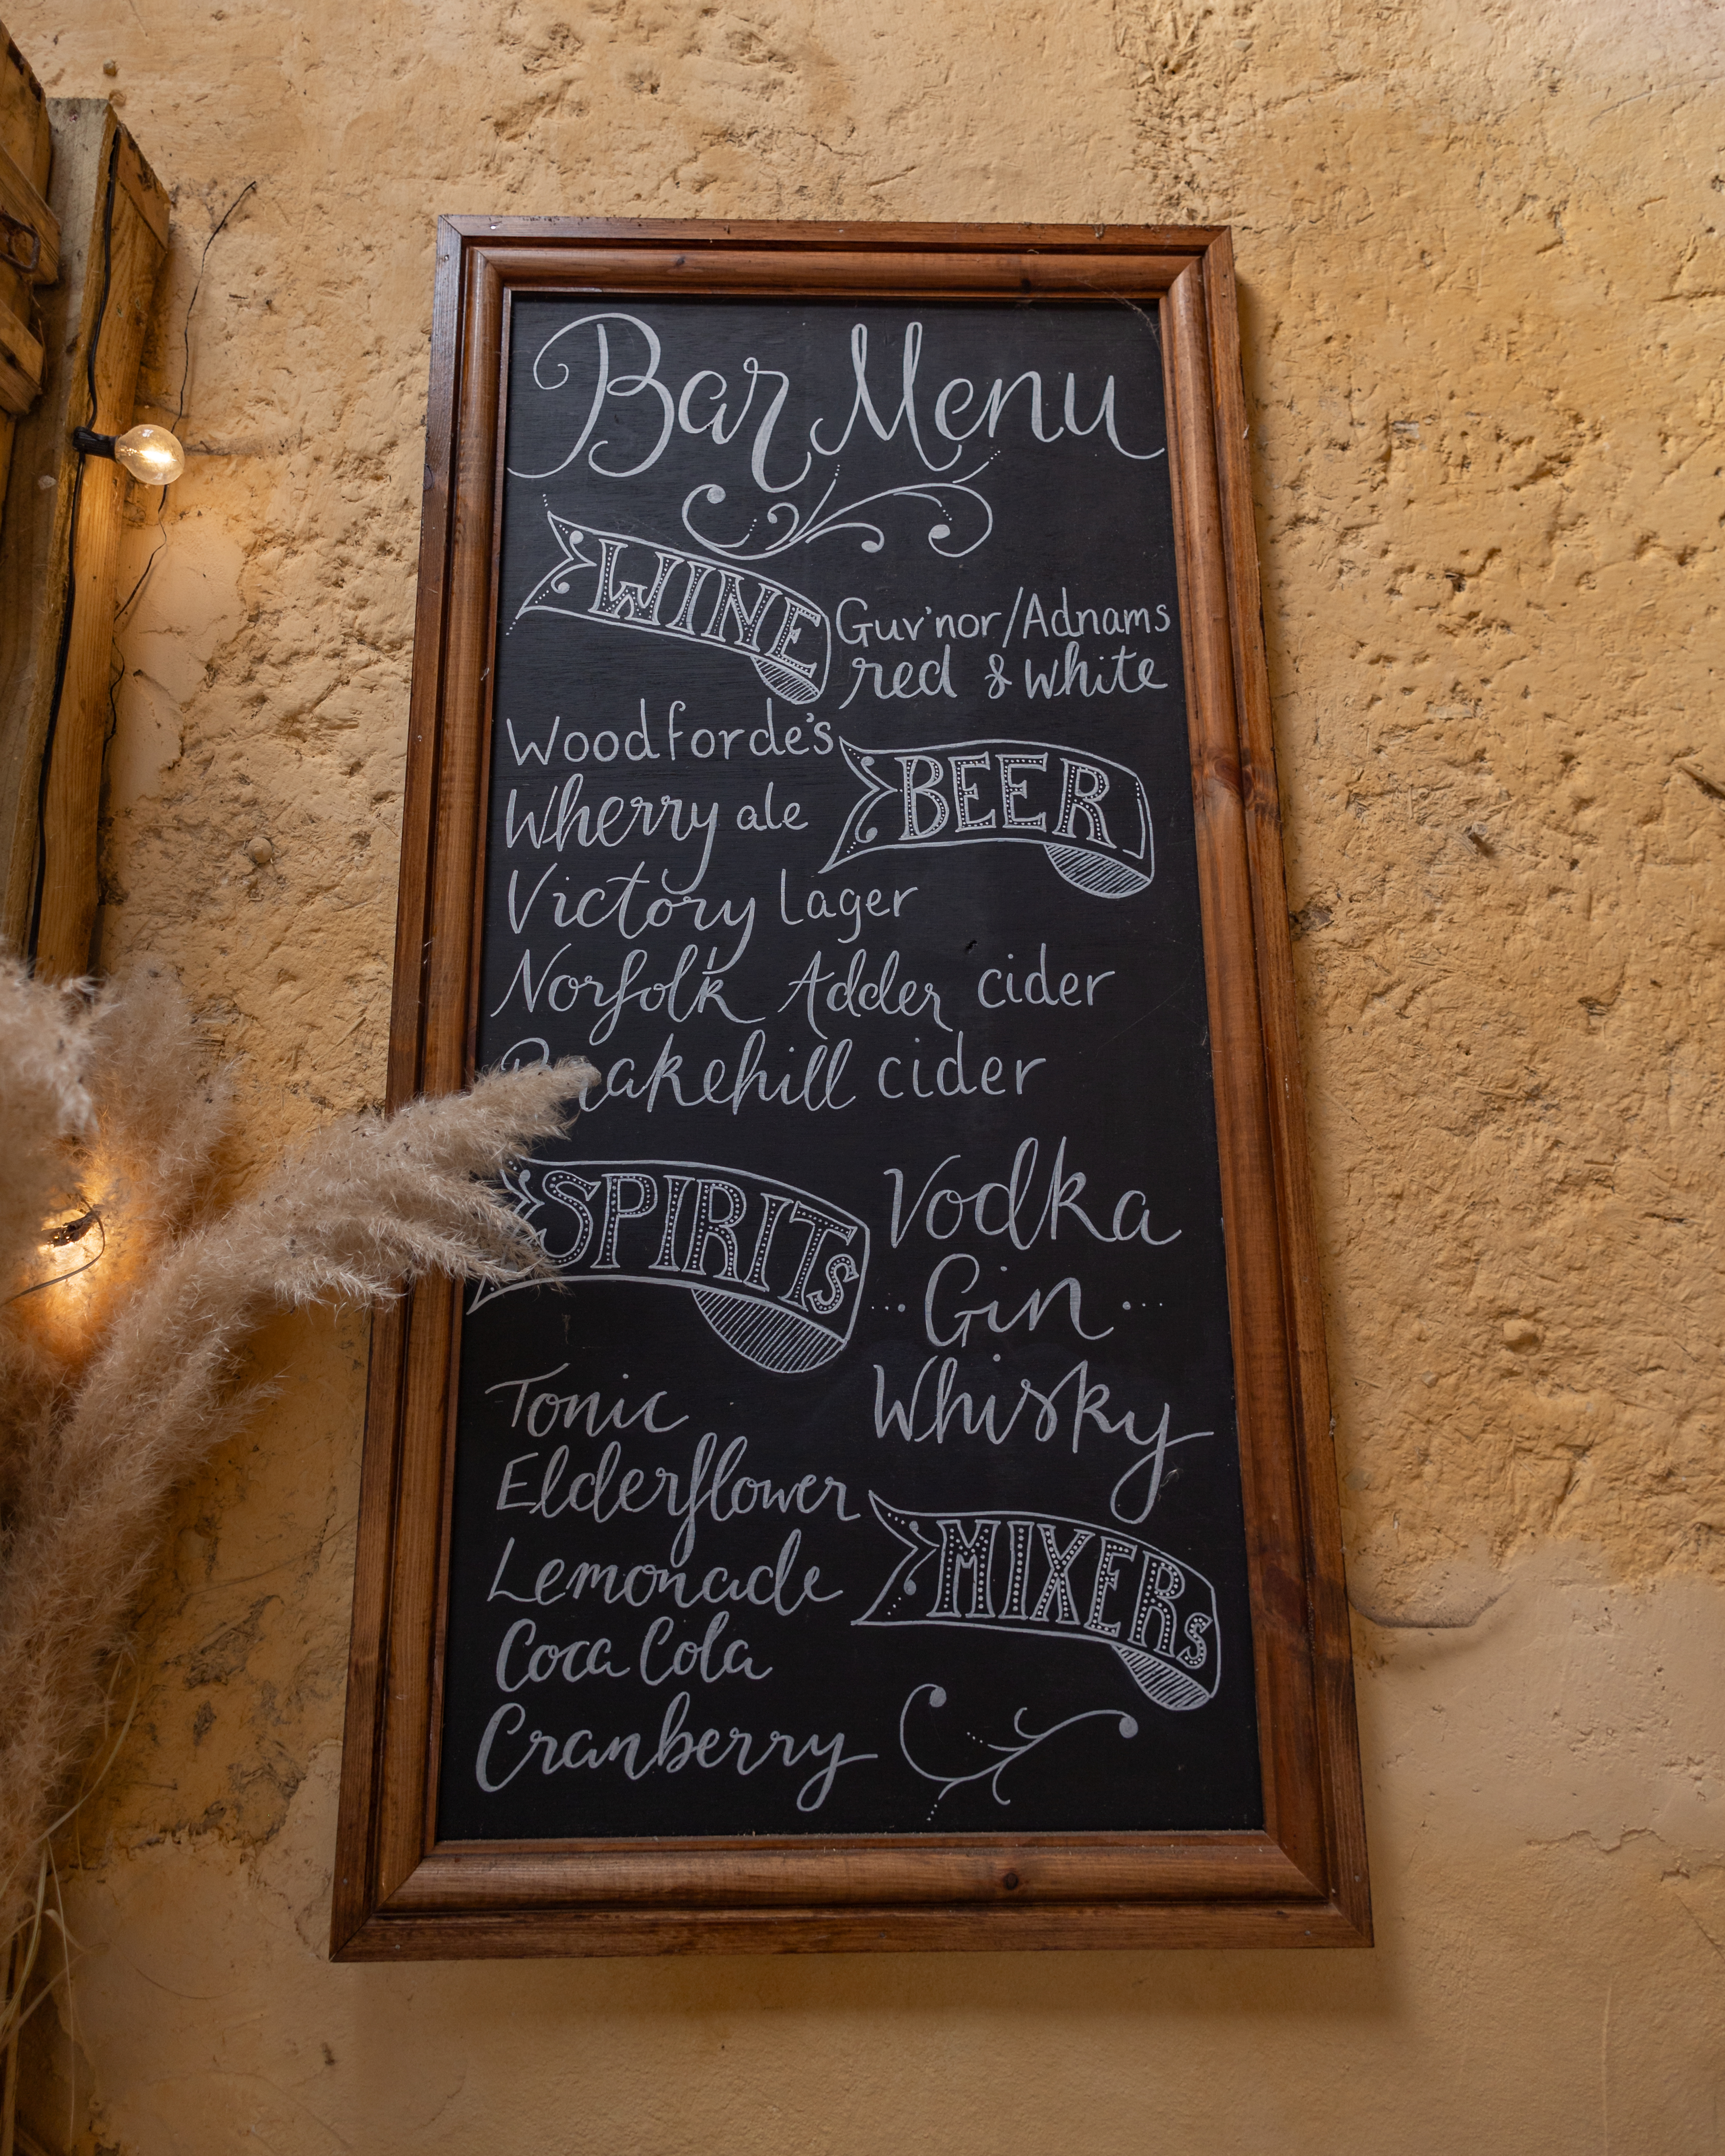 Bar Menu
WINE
Guv'nor/Adnams
red & white
Woodforde's
Wherry ale
BEER
Victory Lager
Norfolk Adder cider
cider
SPIRITS
Vodka
Gin
Whisky
Tonic
Elderflower
Lemonade
MIXERS
Coca Cola
Cranberry